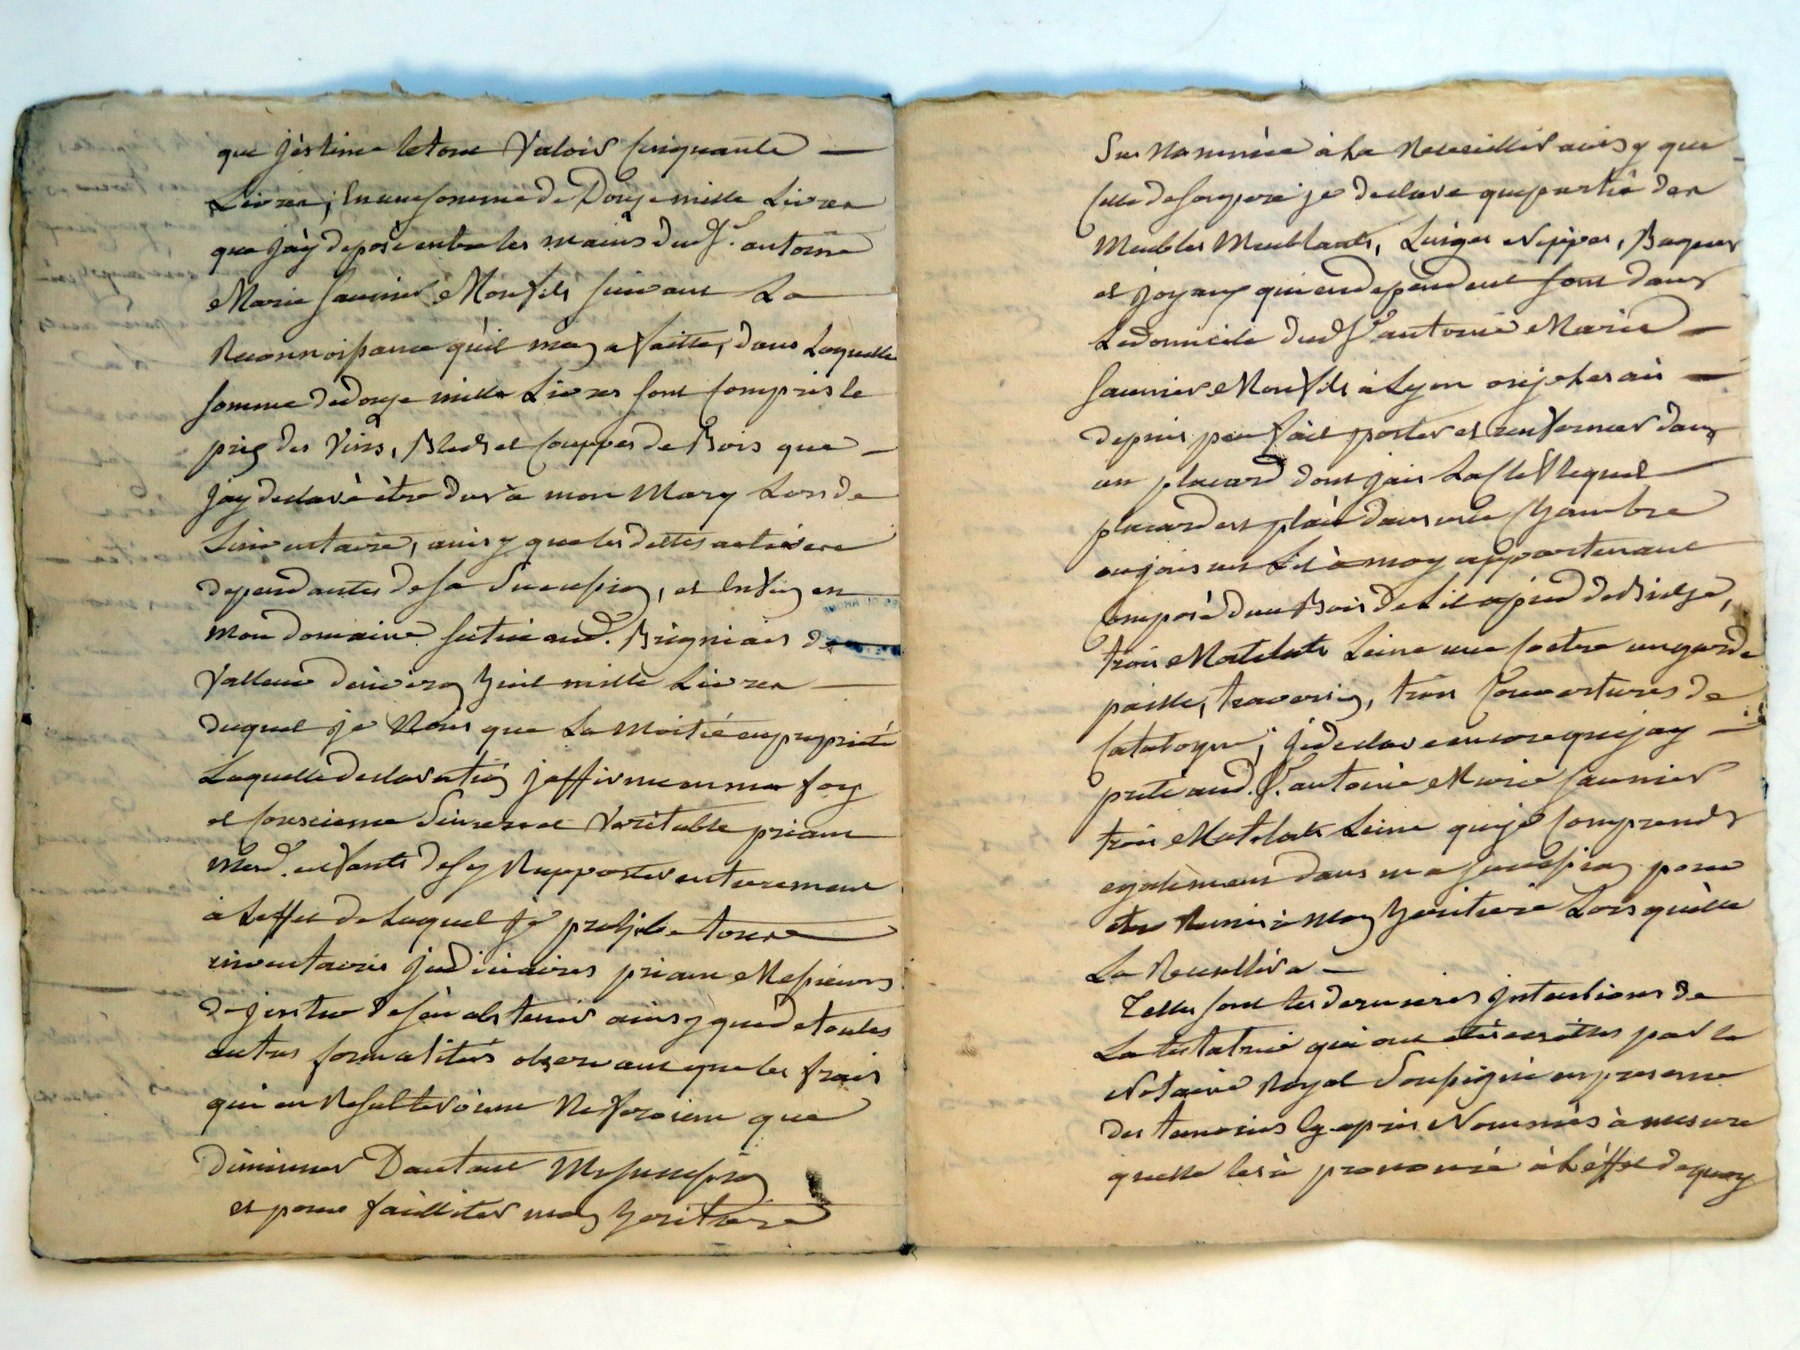 que j'éstime le tout valoir Cinquante
Livres, En une somme de Douze mille Livres
que j'ay déposé entre les mains dud. Sr. antoine
Marie saunier Mon fils suivant La
Reconnoissance qu'il m'en a faitte, dans Laquelle
somme de douze mille Livres sont Compris le
prix des Vins, Bleds et Couppes de Bois que
j'ay declaré être dus à mon Mary Lors de
Linventaire, ainsy que les dettes actives
dependantes de sa succession, et Enfin en
mon domaine scitué aud. Brignais de
Valleur d'environ huit mille Livres
duquel je N'ais que La Moitié en propriété
Laquelle declaration j'affirme en ma foy
et Conscience sincere et Veritable priant
mesd. enfants de s'y Rapporter entierement
à L'effet de Laquel je prohibe tous
inventaires judiciaires priant Messieurs
de justice de s'en abstenir ainsy que de toutes
autres formalités observant que les frais
qui en Resulteroient Ne feroient que
diminuer Dautant Ma succession
et pour facilliter mon heritiere
sus Nommée à La Recueillir ainsy que
Celle de son pere je declare que partie des
Meubles Meublants, Linges Nippes, Bagues
et joyaux qui en dependent sont dans
Le domicile dud. Sr. antoine Marie
saunier Mon fils à Lyon où je les ai
depuis peu fait porter et renfermer dans
un placard dont j'ais La Clef lequel
placard est placé dans une Chambre
ou j'ais un Lit à moy appartenant
Composé d'un Bois de Lit à pied de Biche,
trois Matelats Leine une Coetre un garde
paille, traversin, trois Couvertures de
Catalogne; je declare encore que j'ay
preté aud. Sr. antoine Marie saunier
trois Matelats Leine que je Comprends
egalement dans ma succession pour
être Remis à mon heritiere Lorsqu'elle
La Recuellira
Telles sont les dernieres intentions de
La testatrice qui ont été ecrittes par le
Notaire Royal soussigné en presence
des temoins Cy-après Nommés à mesure
quelle les à prononcé à L'éffet de quoy